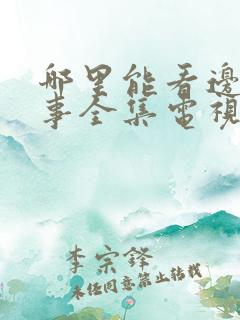 哪里能看邊
事全集電視
李宗鋒
未经同意禁止转载